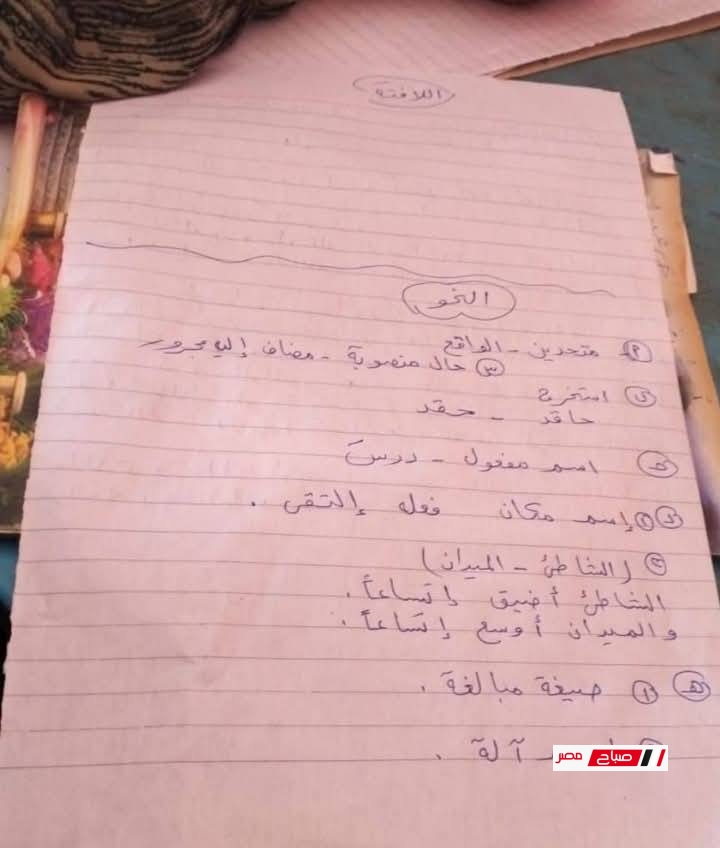 اللافتة
النحو
متحدين - الواقع
③ حال منصوبة - مضاف إليه مجرور
استخرج
حاقد - حقد
اسم مفعول - درسَ
① إسم مكان فعله إلتقى .
② (الشاطئ - الميدان)
الشاطئ أضيق إتساعاً .
والميدان أوسع إتساعاً .
هـ ① صيغة مبالغة .
آلة .
صباح مصر